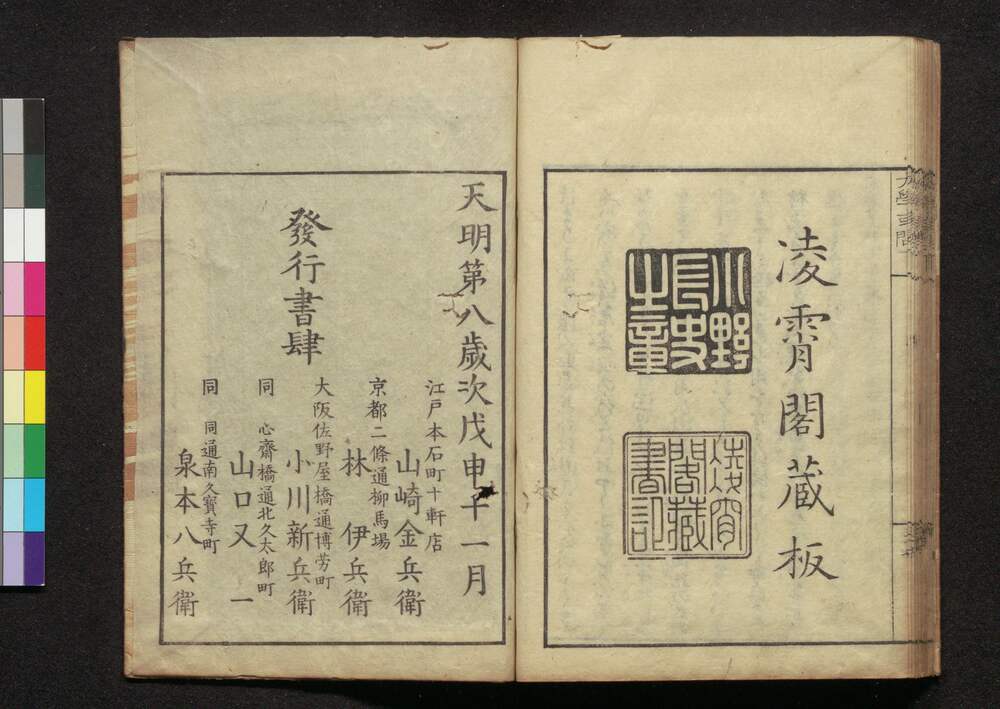 凌霄閣蔵板
凌霄
閣藏
書記
天明第八歳次戊申十一月
發行書肆
江戸本石町十軒店
山崎金兵衛
京都二條通柳馬場
林　伊兵衛
大阪佐野屋橋通博労町
小川新兵衛
同　心齋橋通北久太郎町
山口又一
同　同通南久寳寺町
泉本八兵衛